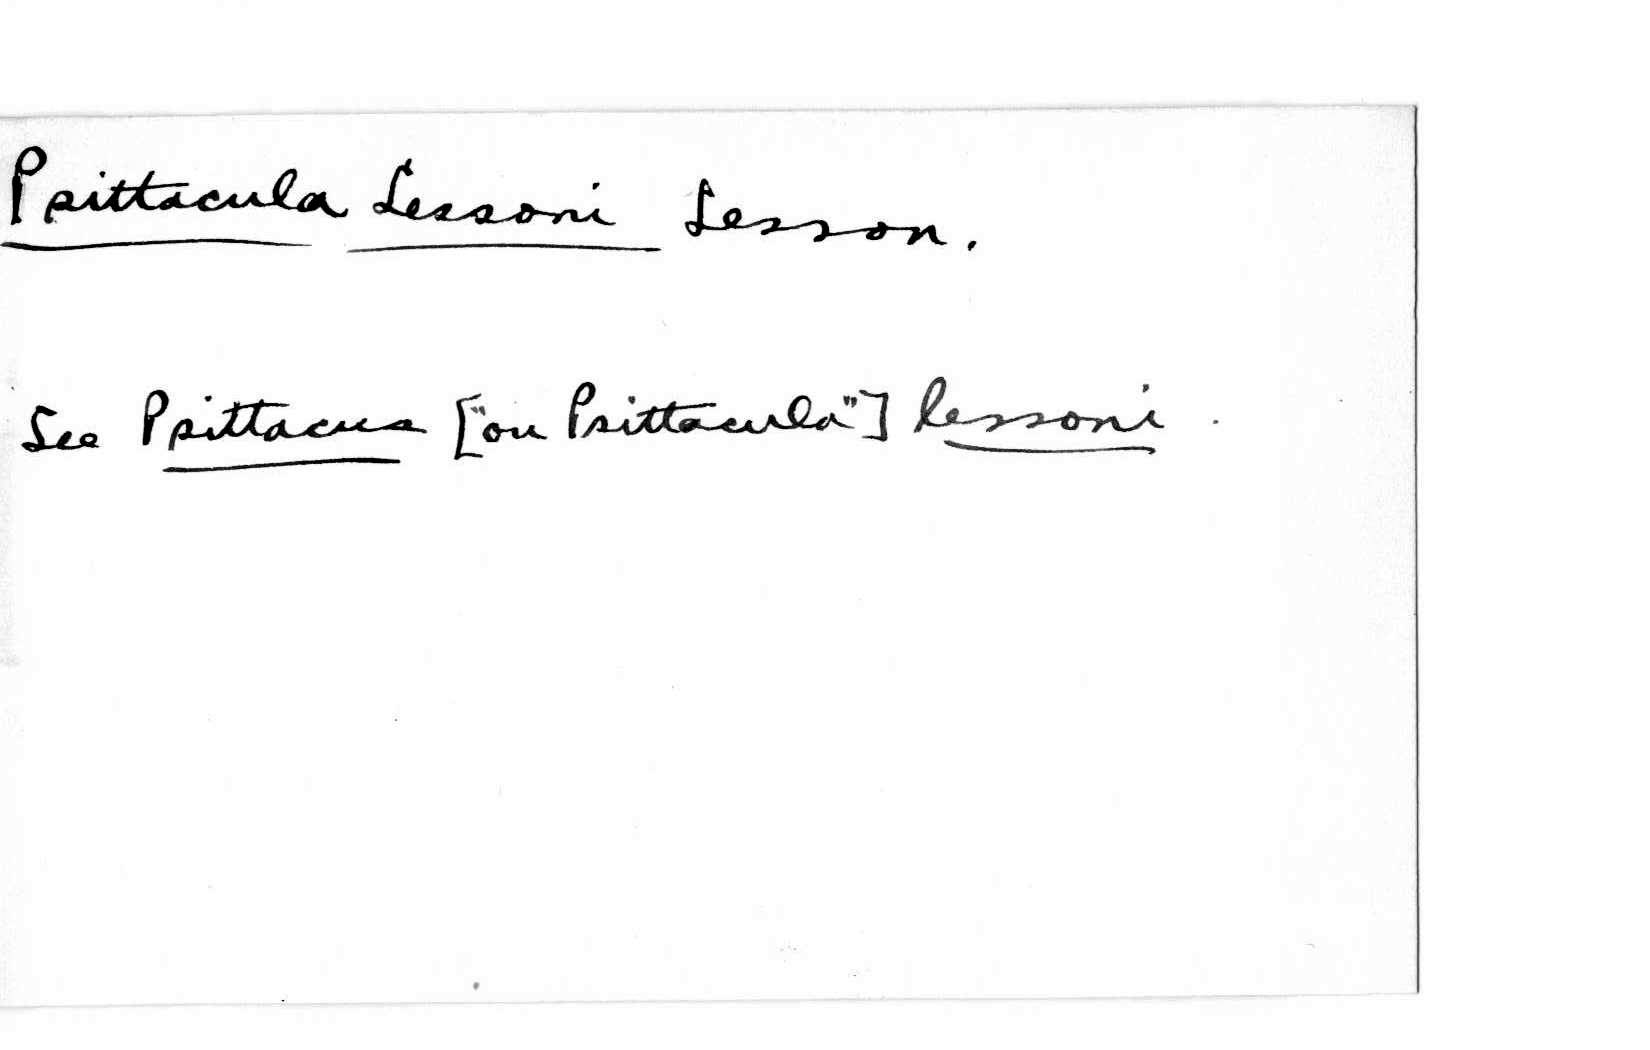 Psittacula Lessoni Lesson.
See Psittacus ["ou Psittacula"] lessoni.